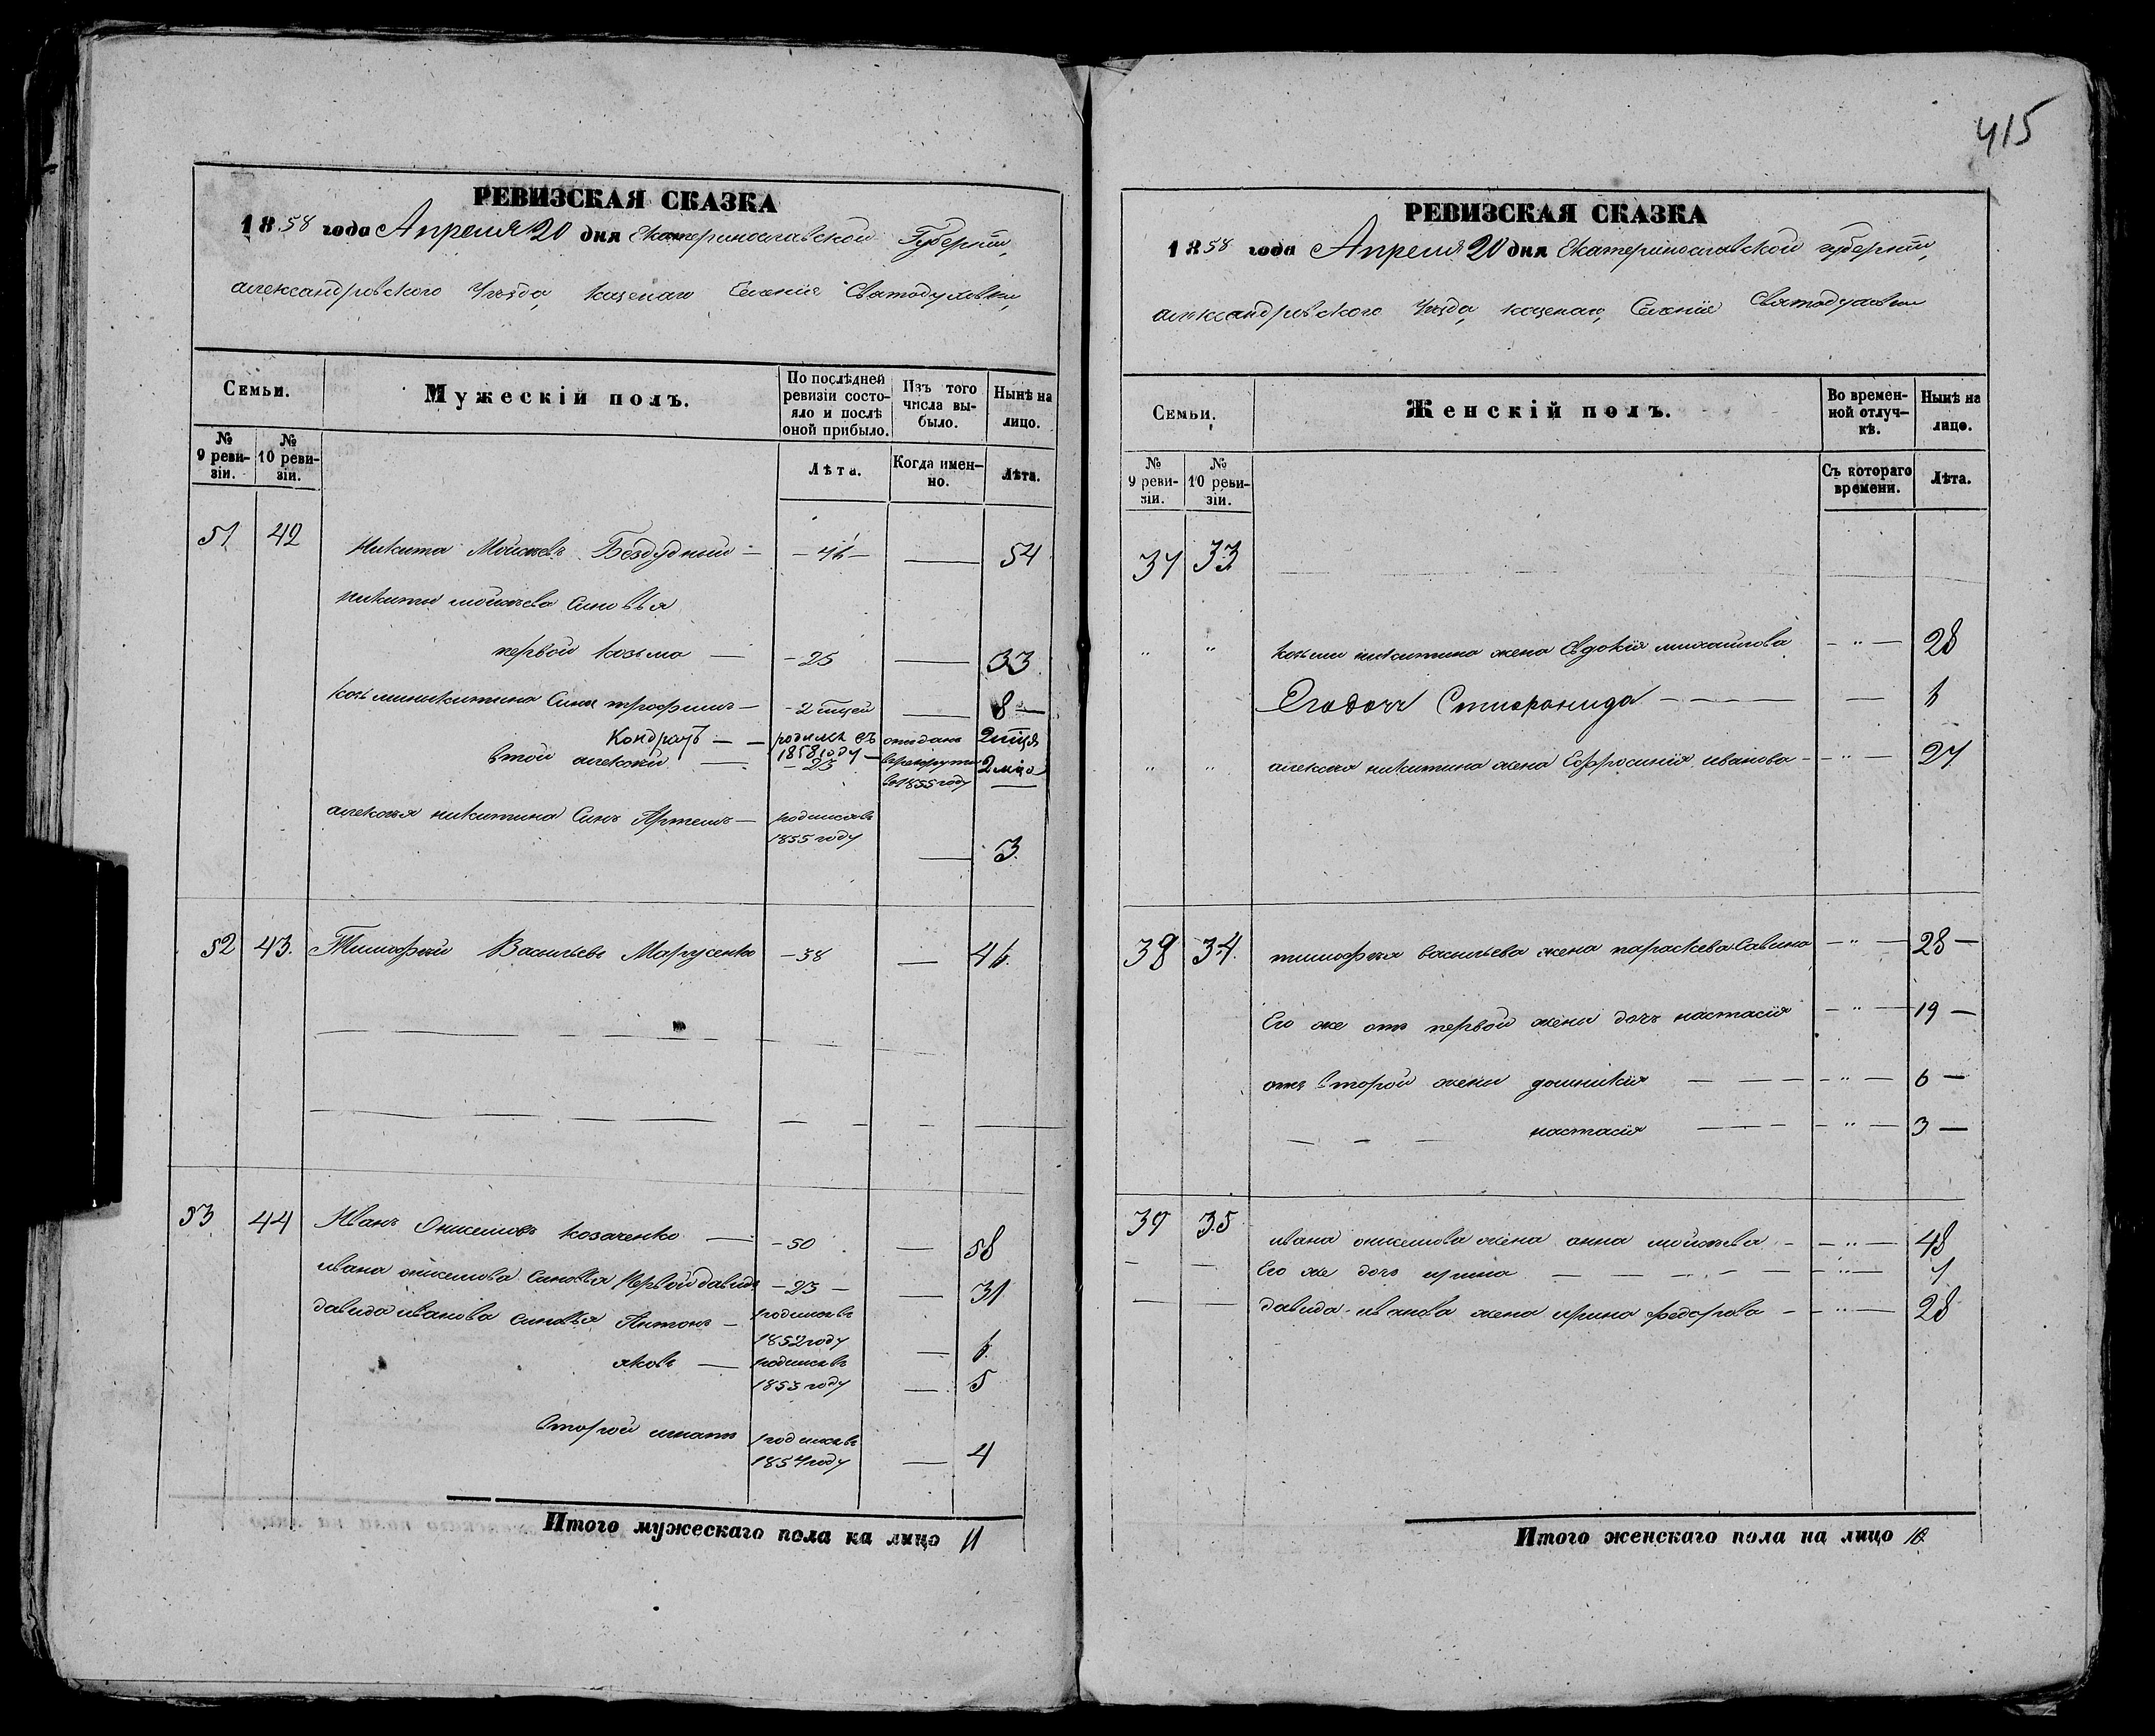 415
РЕВИЗСКАЯ СКАЗКА
1858 года Апреля 20 дня Екатеринославской Губернии,
александровского Уезда, казенаго Селения Святодуховки,
Семьи.
Мужескій полъ.
По послѣдней ревизіи состо-
яло и послѣ
оной прибыло.
Изъ того
числа вы-
было.
Нынѣ на
лицо.
№
9 реви-
зіи.
№
10 реви-
зіи.
Лѣта.
Когда имен-
но.
Лѣта.
51 42 Никита Мойсеевъ — 46 — — 54
Никиты мойсеева Сыновья
первой Козьма — - 25 — 33
Козьми никитина Сынъ трофимъ — - 2 — 8 —
Кондратъ — — родился въ 1858 году — 2 мца
алексей — - 23 отданъ в рекруты в 1855 году —
алексея никитина Сынъ Артемъ — родился въ
1855 году — 3.
52 43. Тимофей Васильевъ Марусенко - 38 — 46.
53 44 Иванъ Онисимовъ козаченко — - 50 — 58
ивана онисимова Сыновья Первой давидъ - 23 — — 31
давида иванова сыновья Антонъ — родился въ
1852 году — 6.
яковъ — родился въ
1853 году — 5
Второй игнатъ родился въ
1854 году — 4
Итого мужескаго пола на лицо 11
РЕВИЗСКАЯ СКАЗКА
1858 года Апреля 20 дня Екатеринославской губернии,
александровского Уезда, казенаго, Селения Святодуховки
Семьи.
Женскій полъ.
Во времен-
ной отлуч-
кѣ.
Нынѣ на
лицо.
№
9 реви-
зіи.
№
10 реви-
зіи.
Съ котораго
времени.
Лѣта.
37 33
" " козьми никитина жена Евдокія михайлова - " — 28
Его дочь — — 6
" " алексея никитина жена Ефросинія иванова - - " — 27
38 34. тимофея васильева жена параскева Савина — " — 28 —
Его же отъ первой жены дочь настасія — " — 19 —
отъ Второй жены домникія — — — - " — 6 —
настасія — — — - " — 3 —
39 35 ивана онисимова жена анна мойсеева - — " — 48
Его же дочь ирина — — — " — 7
давида иванова жена ирина федорова - - " — 28
Итого женскаго пола на лицо 10.